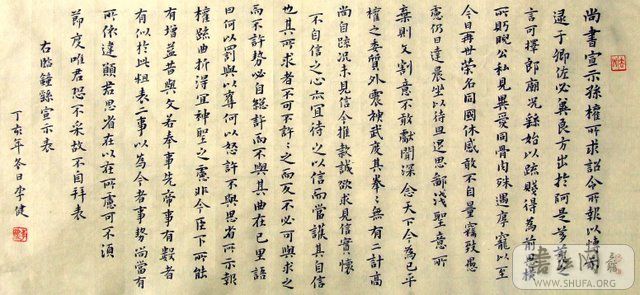 尚書宣示孫權所求詔令所報以博示
逮于卿佐必冀良方出於阿是芻蕘之
言可擇郎廟況繇始以疏賤得為前恩橫
所盱睨公私見異愛同骨肉殊遇厚寵以至
今日再世榮名同國休慼敢不自量竊致愚
慮仍日達晨坐以待旦退思鄙淺聖意所
棄則又割意不敢獻聞深念天下今為已平
權之委質外震神武度其拳〻無有二計高
尚自疏況未見信今推款誠欲求見信實懷
不自信之心亦宜待之以信而當護其自信
也其所求者不可不許〻之而反不必可與求之
而不許勢必自絕許而不與其曲在己里語
曰何以罰與以奪何以怒許不與思省所示報
權疏曲折得宜神聖之慮非今臣下所能
有增益昔與文若奉事先帝事有數者
有似於此粗表二事以為今者事勢尚當有
所依違願君思省若以在所慮可不須
節度唯君恐不采故不自拜表
右臨鍾繇宣示表
丁亥年冬日李健
书法网
WWW.SHUFA.ORG